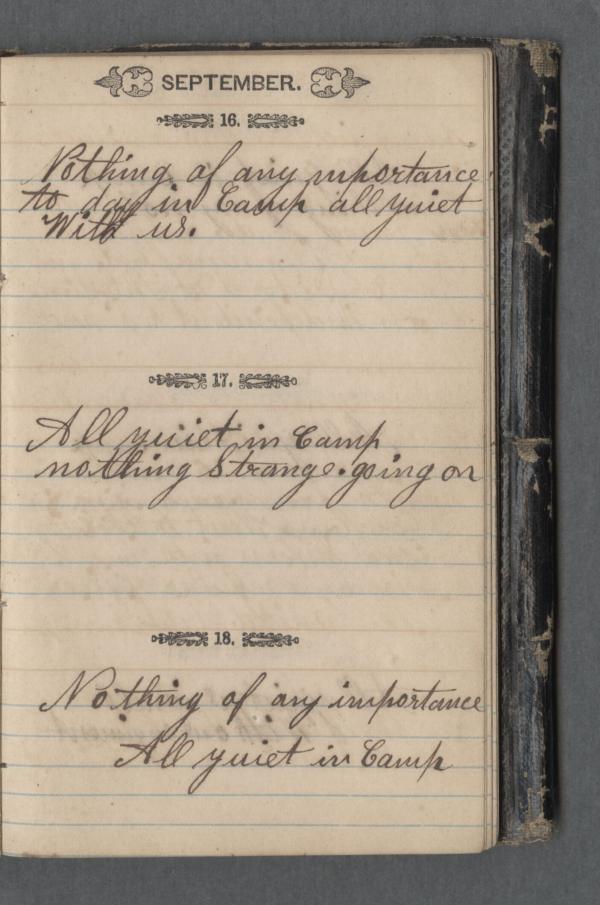 SEPTEMBER.
16.
Nothing of any mportance
to day in Camp all quiet
With us.
17.
All quiet in Camp
nothing Strange. going on
18.
Nothing of any importance
All quiet in Camp